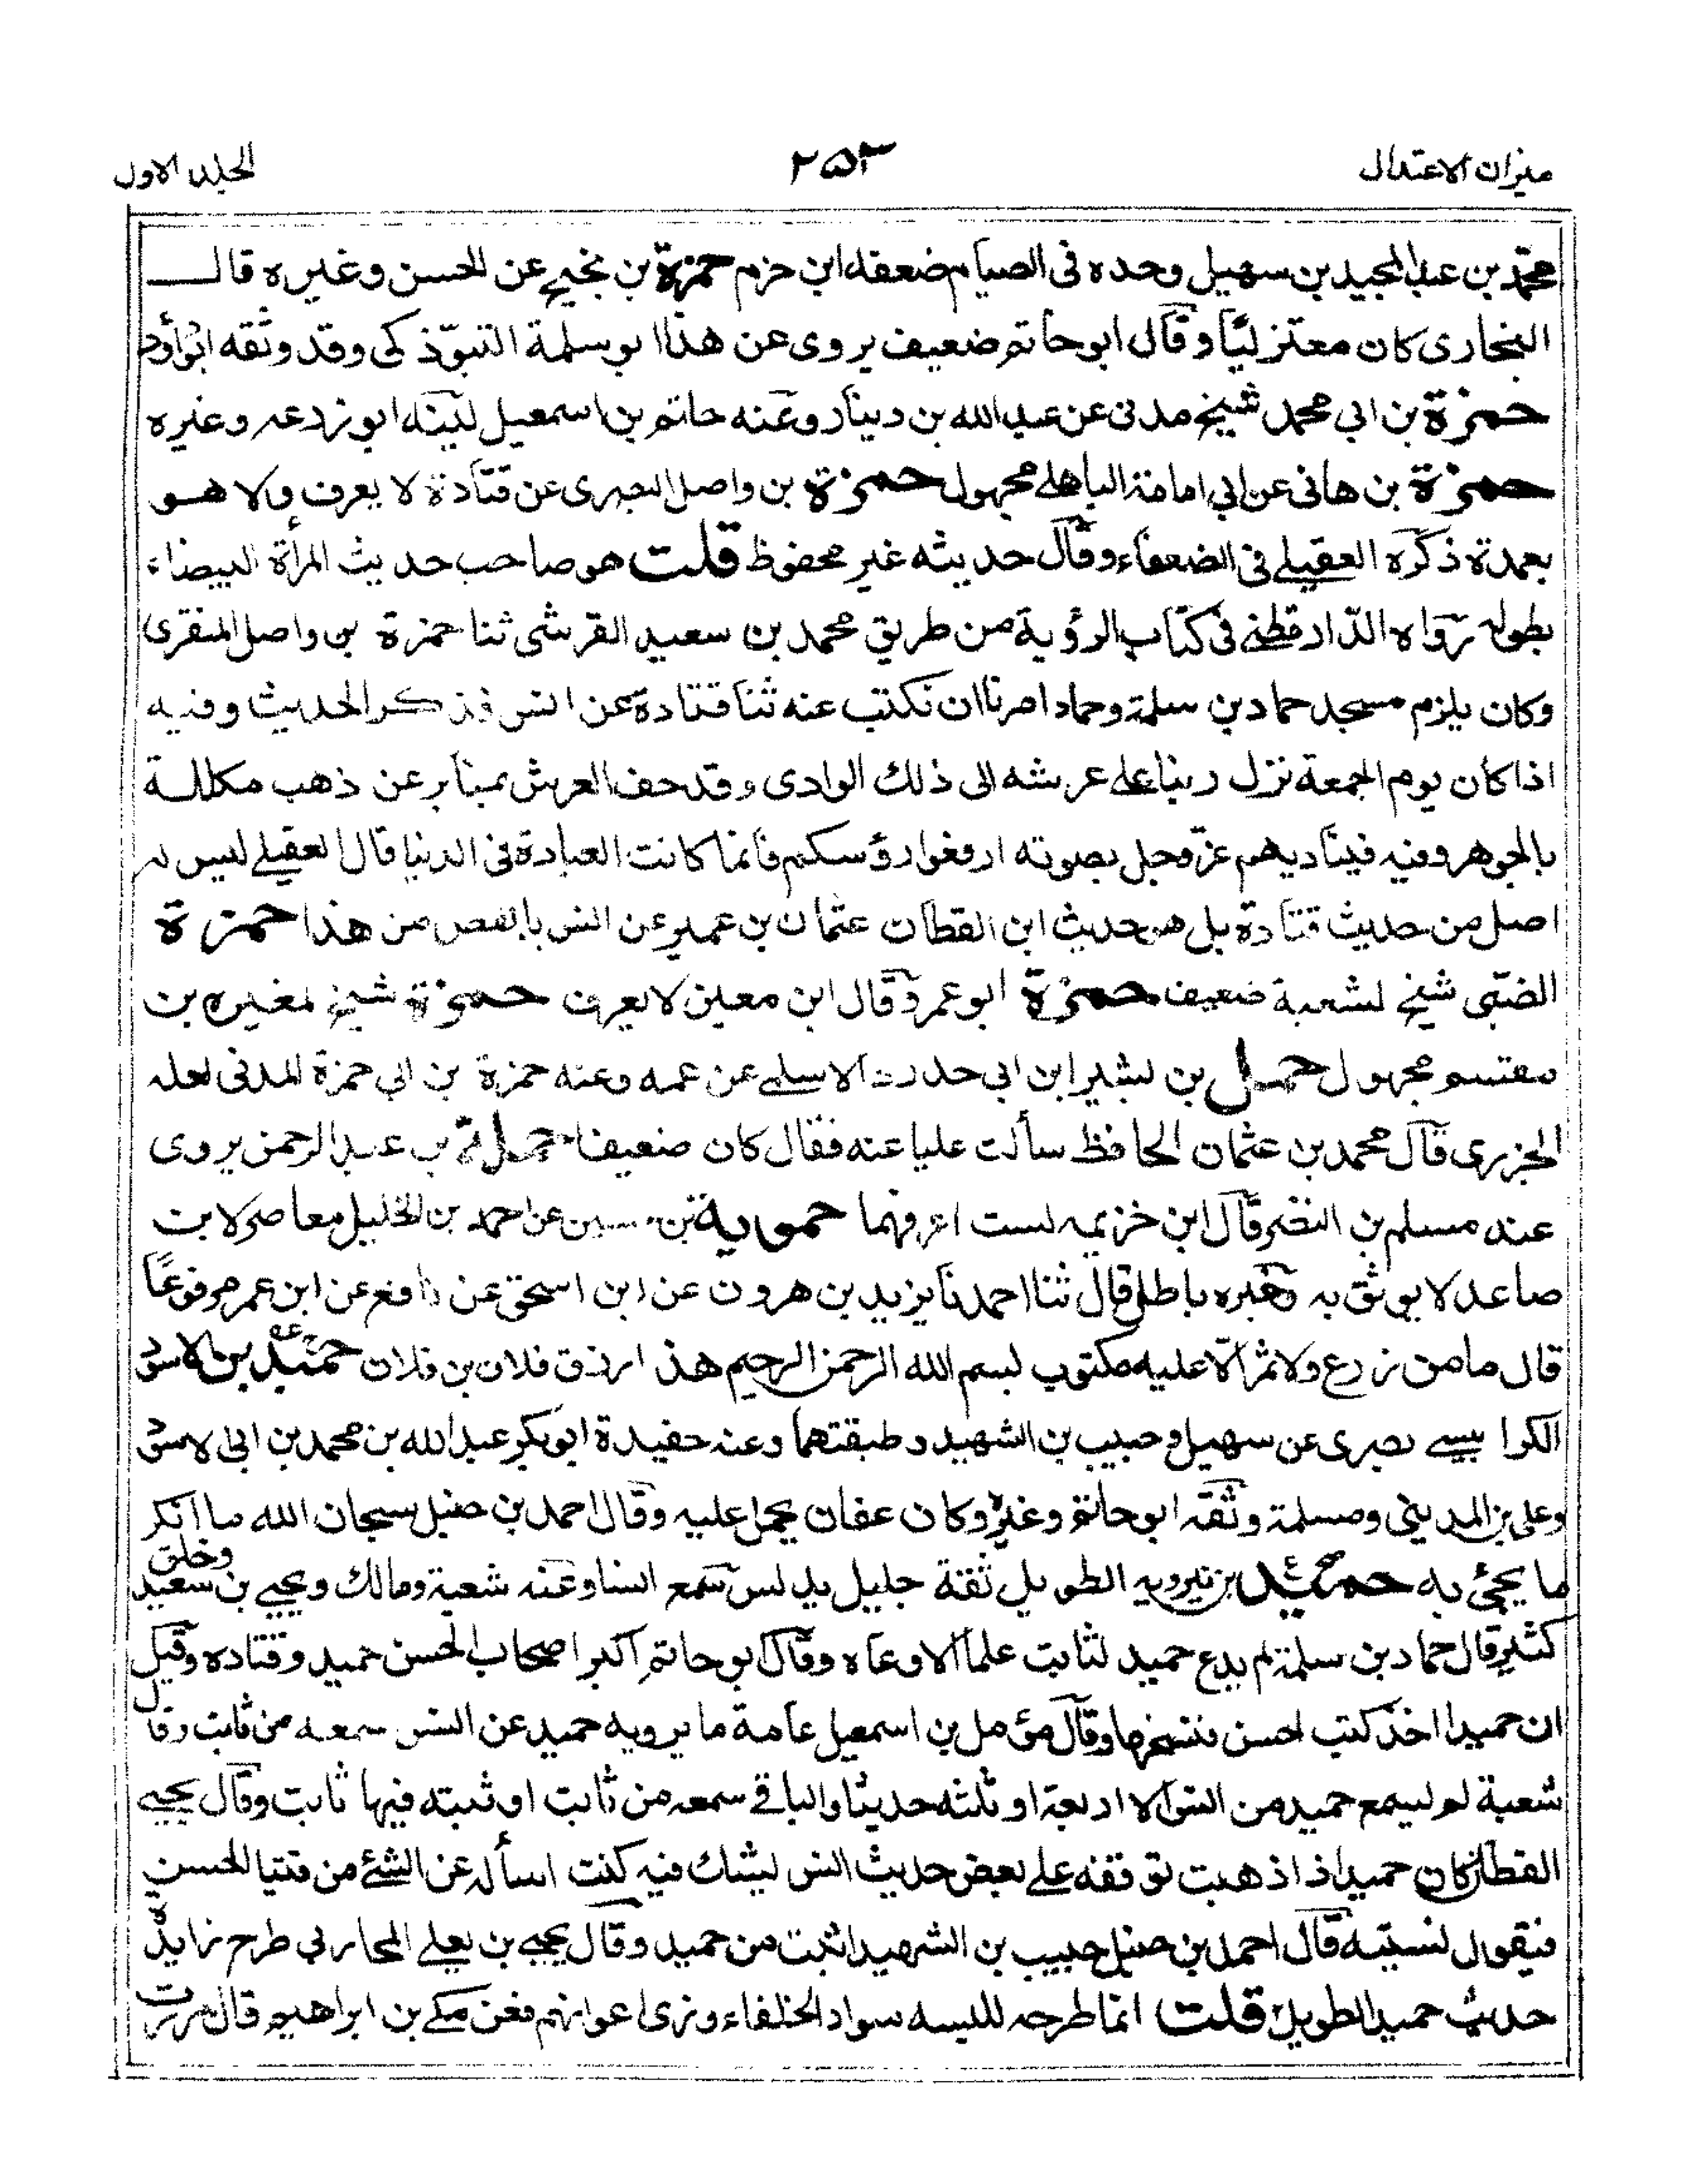 ميزان الاعتدال ٢٥٣ الجلد الاول
محمد بن عبد المجيد بن سهيل وحده في الصيام ضعفه ابن حزم حمزة بن نجيح عن الحسن وغيره قال
البخاري كان معتزليا وقال ابو حاتم ضعيف يروى عن هذا ابو سلمة التبوذكى وقد وثقه ابو داود
حمزة بن ابي محمد شيخ مدنى عن عبد الله بن دينار وعنه حاتم بن اسمعيل لينه ابو زرعه وغيره
حمزة بن هانى عن ابي امامة الباهلے مجهول حمزة بن واصل البصرى عن قتادة لا يعرف ولا هو
بعمدة ذكره العقيلے في الضعفاء وقال حديثه غير محفوظ قلت هو صاحب حديث المرأة البيضاء
بطوله رواه الدارقطنے في كتاب الرؤية من طريق محمد بن سعيد القرشى ثنا حمزة بن واصل المنقرى
وكان يلزم مسجد حماد بن سلمة وحماد امرنا ان نكتب عنه ثنا قتادة عن انس فذكر الحديث وفيه
اذا كان يوم الجمعة نزل ربنا علے عرشه الى ذلك الوادى وقد حف العرش بمنابر عن ذهب مكللة
بالجوهر وفيه فيناديهم عز وجل بصوته ارفعوا رؤسكم فانما كانت العبادة في الدنيا قال العقيلے ليس له
اصل من حديث قتادة بل هو حديث ابن القطان عثمان بن عمير عن انس بانقص من هذا حمزة
الضبى شيخ لشعبة ضعيف حمزة ابو عمرو قال ابن معين لا يعرف حمزة شيخ لمغيره بن
مقسم مجهول حمل بن بشير ابن ابى حدرد الاسلمے عن عمه وعنه حمزة بن ابي حمزة المدنى لعله
الجزرى قال محمد بن عثمان الحافظ سألت عليا عنه فقال كان ضعيفا حملة بن عبد الرحمن يروى
عنه مسلم بن النضر قال ابن خزيمه لست اعرفهما حموية بن حسين عن احمد بن الخليل معاصر لابن
صاعد لا يوثق به وخبره باطل قال ثنا احمد نا يزيد بن هرون عن ابن اسحق عن نافع عن ابن عمر مرفوعا
قال ما من زرع ولا ثمر الا عليه مكتوب بسم الله الرحمن الرحيم هذا رزق فلان بن فلان حميد بن الاسود
الكرابيسے بصرى عن سهيل وحبيب بن الشهيد وطبقتهما وعنه حفيدة ابو بكر عبد الله بن محمد بن ابى الاسود
وعلى بن المدينى ومسلمة وثقه ابو حاتم وغيره وكان عفان يحمل عليه وقال احمد بن حنبل سبحان الله ما انكر
ما يجئ به حميد بن تيرويه الطويل ثقة جليل يدلس سمع انسا وعنه شعبة ومالك ويحيے بن سعيد وخلق
كثير قال حماد بن سلمة لم يدع حميد لثابت علما الا وعاه وقال ابو حاتم اكبر اصحاب الحسن حميد وقتاده وقيل
ان حميدا اخذ كتب الحسن فنسخها وقال مؤمل بن اسمعيل عامة ما يرويه حميد عن انس سمعه من ثابت وقال
شعبة لم يسمع حميد من انس الا اربعة او ثلثه حديثا والباقے سمعه من ثابت او ثبته فيها ثابت وقال يحيے
القطان كان حميد اذا ذهبت توقفه علے بعض حديث انس يشك فيه كنت اسأله عن الشئ من فتيا الحسن
فيقول نسيته قال احمد بن حنبل حبيب بن الشهيد اثبت من حميد وقال يحيے بن يعلے المحاربى طرح زايدة
حديث حميد الطويل قلت انما طرحه للبسه سواد الخلفاء وزى اعوانهم فعن مكے بن ابراهيم قال مررت